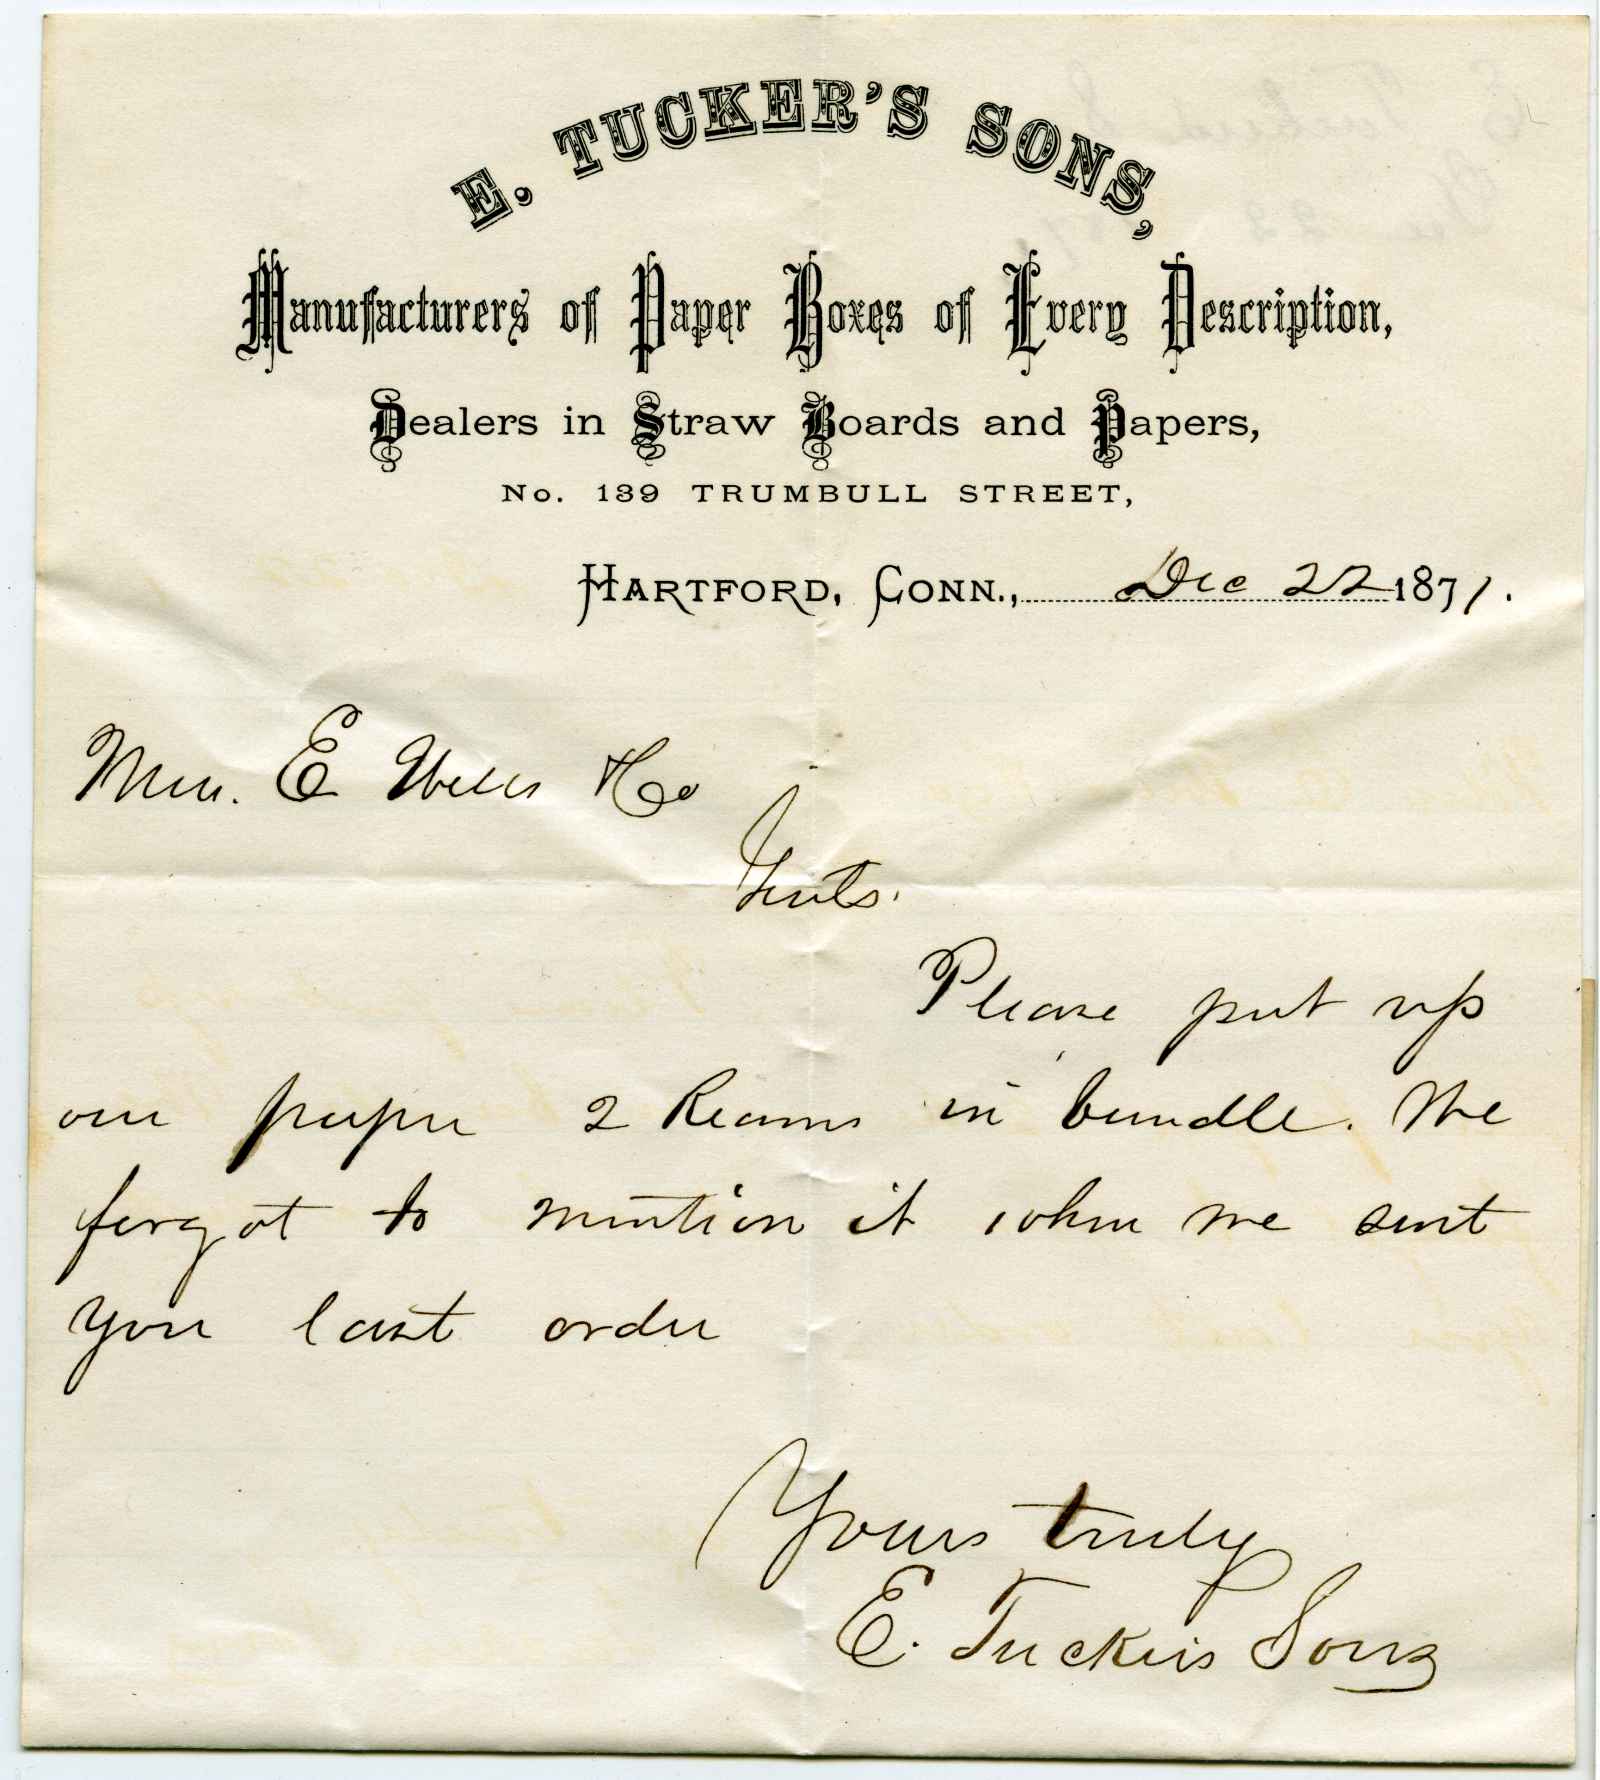 E. TUCKER'S SONS,
Manufacturers of Paper Boxes of Every Description,
Dealers in Straw Boards and Papers,
No. 139 TRUMBULL STREET,
HARTFORD, CONN., Dec 22 1871.
E Wells & Co
Gents.
Please put up
our paper 2 Reams in bundle. We
forgot to mention it when we sent
you last order
Yours truly
E. Tuckers Sons